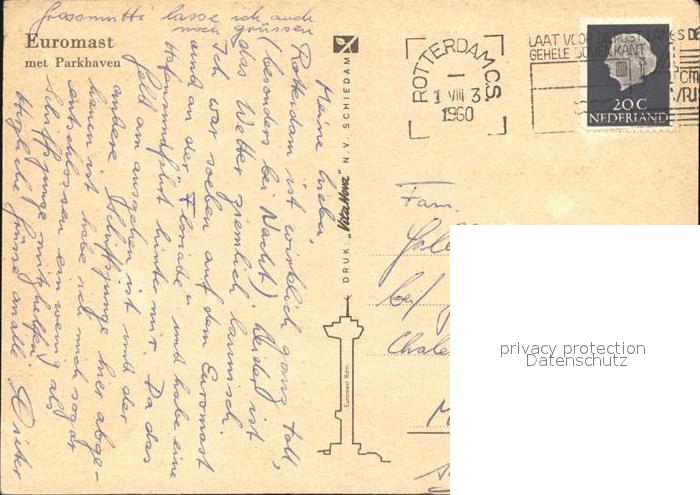 Grossmutti lasse ich auch
noch grüssen
Euromast
met Parkhaven
Meine Lieben,
Rotterdam ist wirklich ganz toll,
(besonders bei Nacht) leider ist
das Wetter ziemlich launisch.
Ich war soeben auf dem Euromast
und an der Floriade u. und habe eine
Hafenrundfahrt hinter mir. Da das
Geld am ausgehen ist und der
andere Schiffsjunge hier abge-
hauen ist habe ich mich sogar
entschlossen ein wenig als
Schiffsjunge mitzuhelfen!
Herzliche Grüsse an alle. Dieter
DRUK. „VitaNova" N.V. SCHIEDAM
Euromast Rdm.
ROTTERDAM C.S.
1 VIII 3
1960
LAAT VOOR DE POST LANGS DE
GEHELE BOVENKANT
20 C
NEDERLAND
Fam.
bei
Chale
privacy protection
Datenschutz